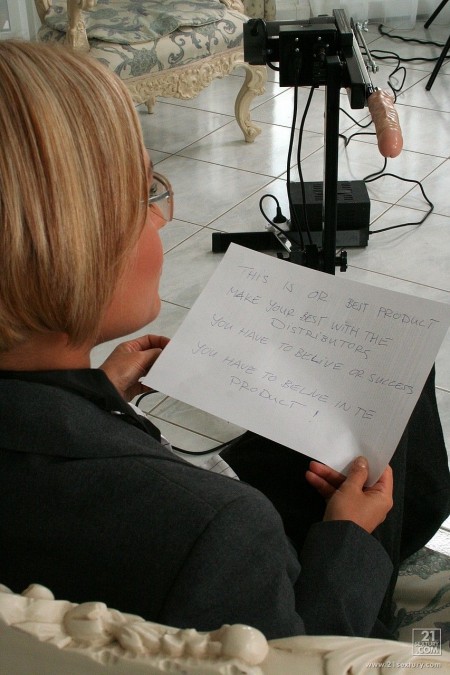 THIS IS OR BEST PRODUCT
MAKE YOUR BEST WITH THE
DISTRIBUTORS
YOU HAVE TO BELIVE OR SUCCESS
YOU HAVE TO BELIVE IN TE
PRODUCT!
21
SEXTURY
.COM
www.21sextury.com